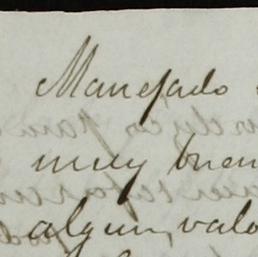 Manejado
muy buen
algun, valo